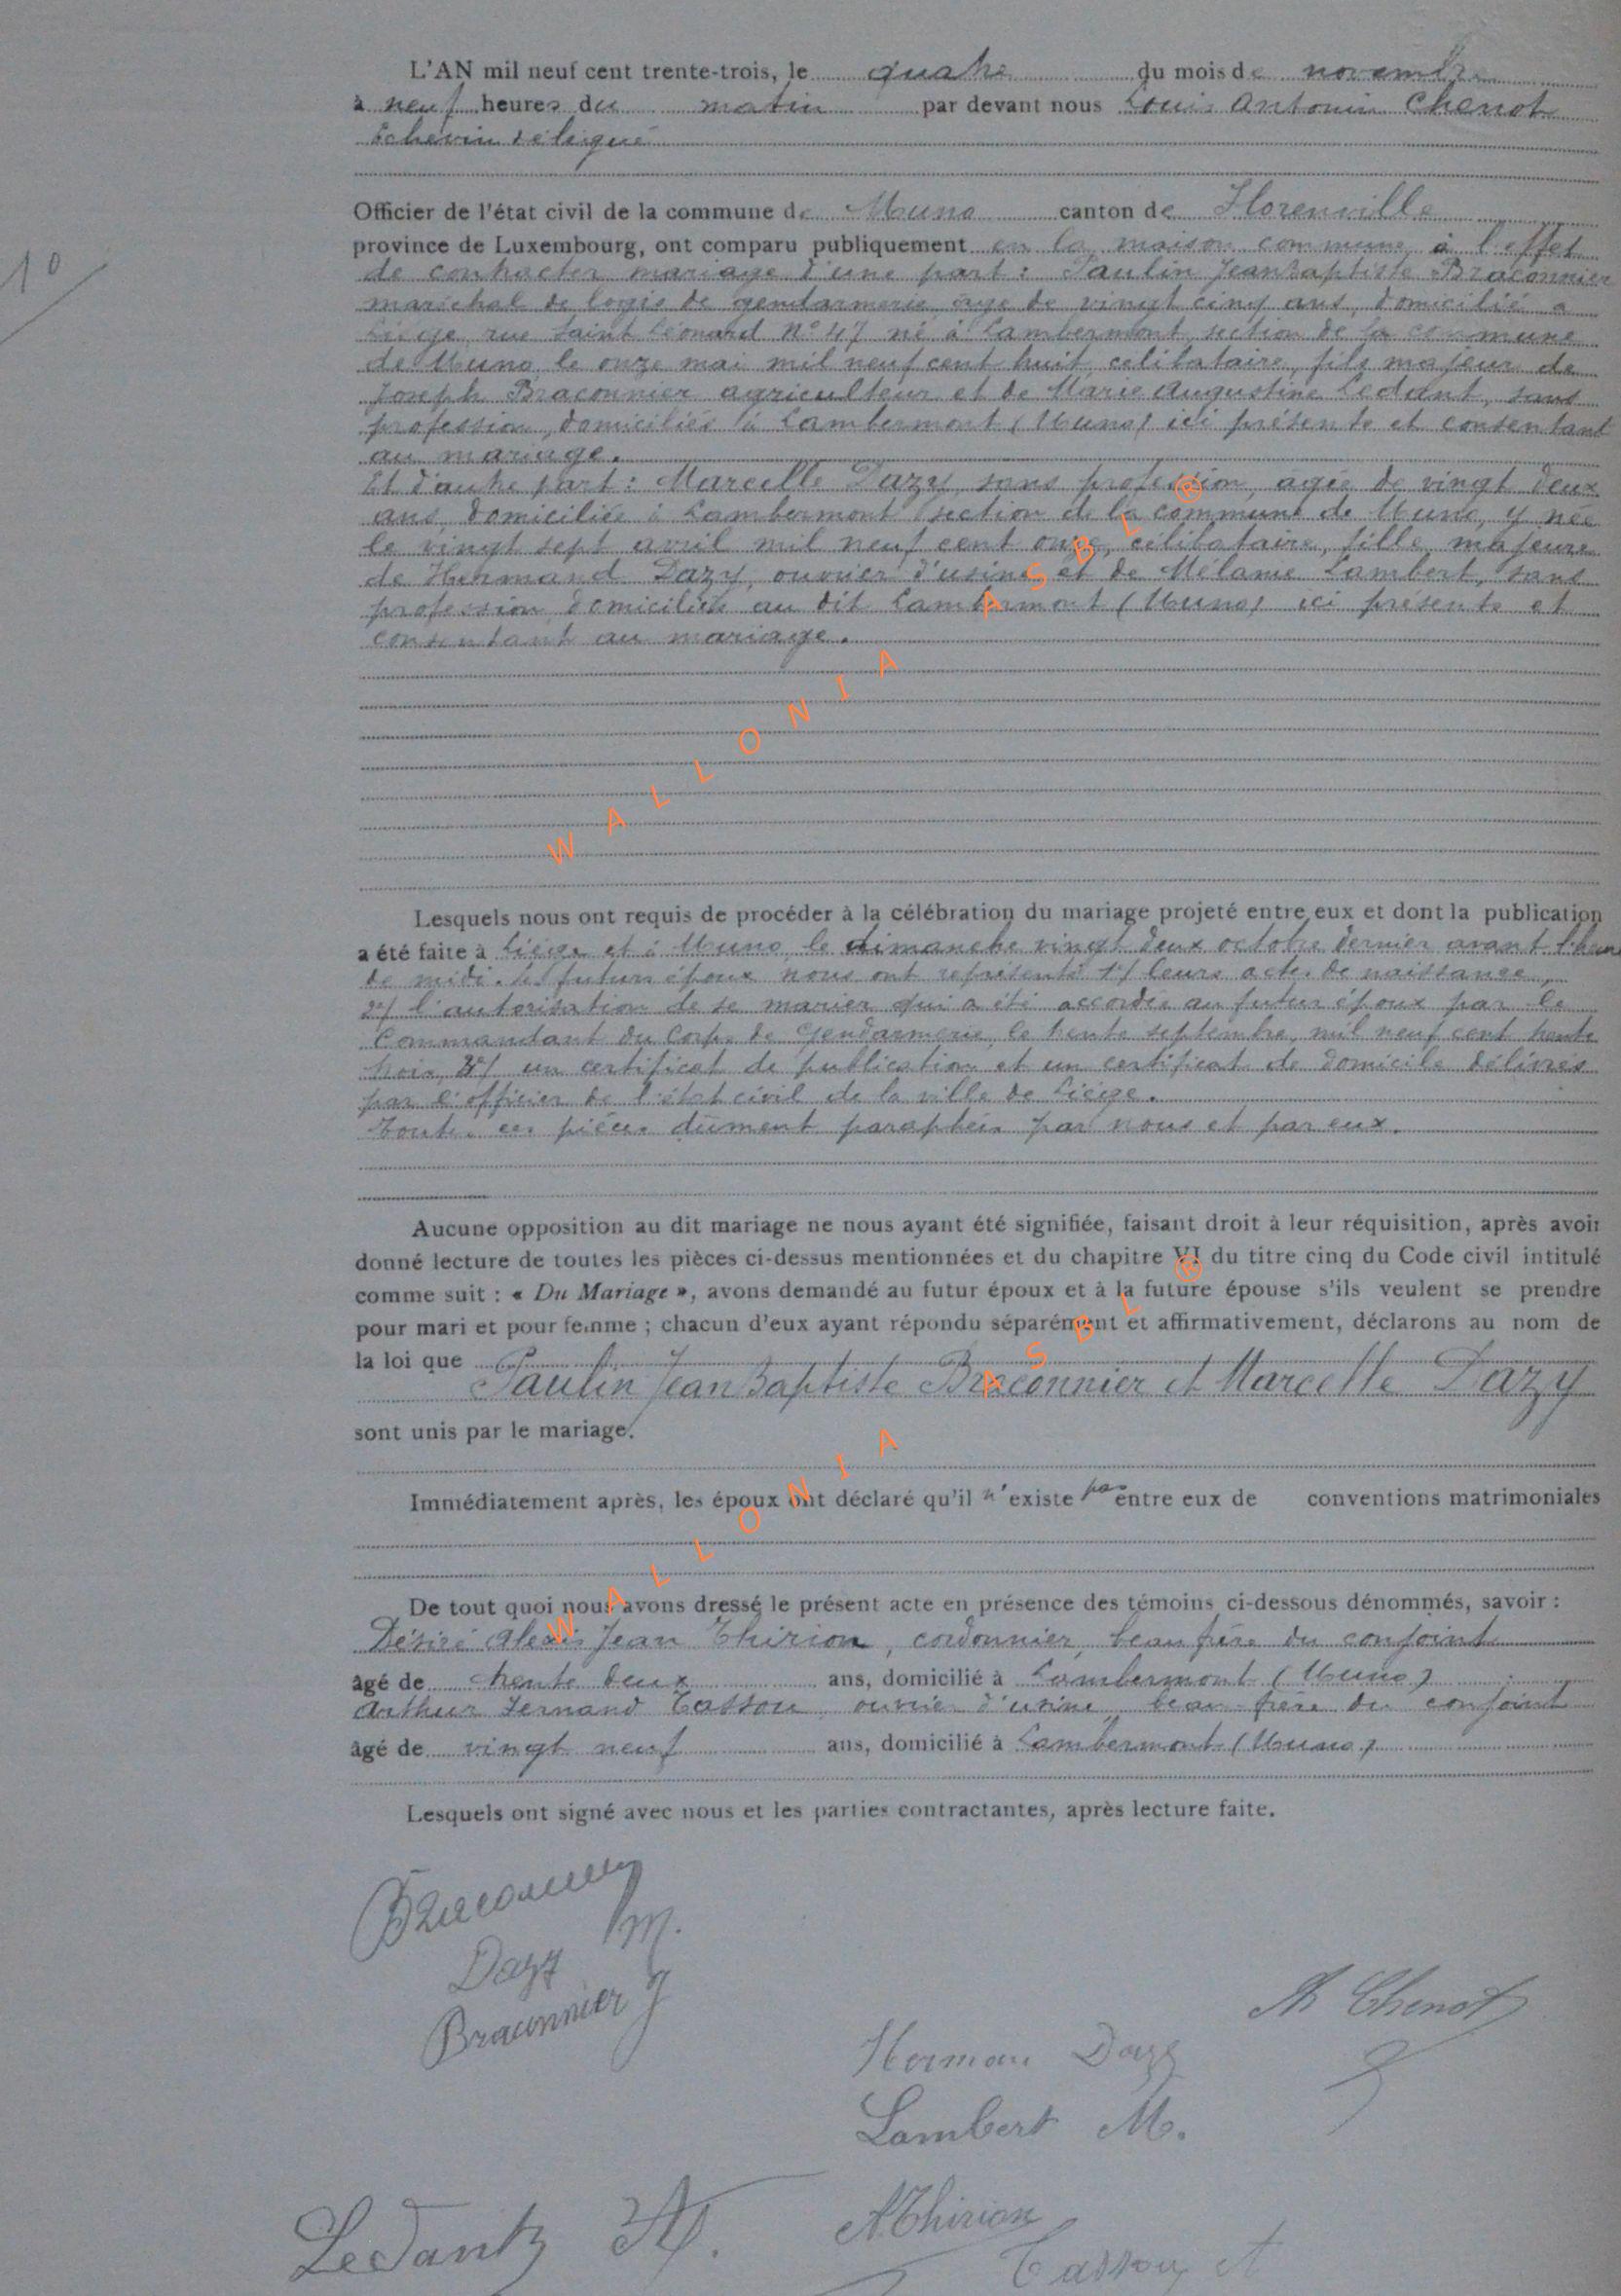 L'AN mil neuf cent trente-trois, le quatre du mois de novembre
à neuf heures du matin par devant nous Louis Antonin Chenot
Echevin délégué
Officier de l'état civil de la commune de Muno canton de Florenville
province de Luxembourg, ont comparu publiquement en la maison commune à l'effet
10
de contracter mariage d'une part : Paulin Jean Baptiste Braconnier
maréchal de logis de gendarmerie, âgé de vingt cinq ans, domicilié à
Liège, rue Saint Léonard N° 47 né à Lambermont, section de la commune
de Muno le onze mai mil neuf cent huit, célibataire, fils majeur de
Joseph Braconnier agriculteur et de Marie Augustine Ledant, sans
profession, domiciliés à Lambermont (Muno) ici présents et consentant
au mariage.
Et d'autre part : Marcelle Dazy, sans profession, agée de vingt deux
ans, domiciliée à Lambermont section de la commune de Muno, y née
le vingt sept avril mil neuf cent onze, célibataire, fille majeure
de Hermand Dazy, ouvrier d'usine et de Mélanie Lambert, sans
profession domiciliés au dit Lambermont (Muno) ici présents et
consentant au mariage.
WALLONIA ASBL ®
Lesquels nous ont requis de procéder à la célébration du mariage projeté entre eux et dont la publication
a été faite à Liège et à Muno, le dimanche vingt deux octobre dernier avant l'heure
de midi. Les futurs époux nous ont représenté 1°/ leurs actes de naissance,
2°/ l'autorisation de se marier qui a été accordée au futur époux par le
Commandant du Corps de Gendarmerie, le trente septembre, mil neuf cent trente
trois, 3°/ un certificat de publication et un certificat de domicile délivrés
par l'officier de l'état civil de la ville de Liège.
Toutes ces pièces dûment paraphées par nous et par eux.
Aucune opposition au dit mariage ne nous ayant été signifiée, faisant droit à leur réquisition, après avoir
donné lecture de toutes les pièces ci-dessus mentionnées et du chapitre VI du titre cinq du Code civil intitulé
comme suit : « Du Mariage », avons demandé au futur époux et à la future épouse s'ils veulent se prendre
pour mari et pour femme ; chacun d'eux ayant répondu séparément et affirmativement, déclarons au nom de
la loi que
Paulin Jean Baptiste Braconnier et Marcelle Dazy
sont unis par le mariage.
WALLONIA ASBL ®
Immédiatement après, les époux ont déclaré qu'il n'existe pas entre eux de conventions matrimoniales
De tout quoi nous avons dressé le présent acte en présence des témoins ci-dessous dénommés, savoir :
Désiré Alexis Jean Thirion, cordonnier, beau frère du conjoint
âgé de trente deux ans, domicilié à Lambermont (Muno)
Arthur Fernand Tassou, ouvrier d'usine, beau-frère du conjoint
âgé de vingt neuf ans, domicilié à Lambermont (Muno)
Lesquels ont signé avec nous et les parties contractantes, après lecture faite.
Braconnier
Dazy M.
Braconnier J
A Chenot
Herman Dazy
Lambert M.
Ledant A.
A Thirion
Tassou A